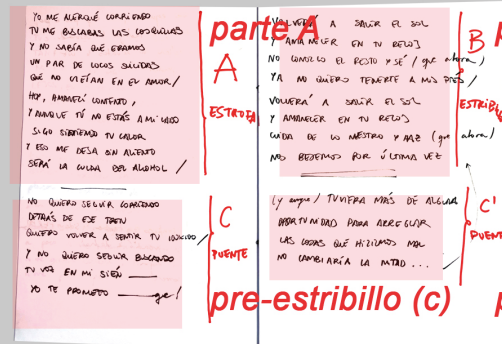 YO ME ALERQUÉ CORRIENDO
TÚ ME BUSCABAS LAS COSQUILLAS
Y NO SABÍA QUE ÉRAMOS
UN PAR DE LOCOS SUICIDAS
QUE NO CREÍAN EN EL AMOR /
HOY, AMANECÍ CONTENTO,
Y AUNQUE TÚ NO ESTÁS A MI LADO
SIGO SINTIENDO TU CALOR
Y ESO ME DEJA SIN ALIENTO
SERÁ LA CULPA DEL ALCOHOL /
parte A
A
ESTROFA
NO QUIERO SEGUIR CORRIENDO
DETRÁS DE ESE TREN
QUIERO VOLVER A SENTIR TU
Y NO QUIERO SEGUIR BUSCANDO
TU VOZ EN MI SIEN
YO TE PROMETO
C
PUENTE
pre-estribillo (c)
VOLVERÁ A SALIR EL SOL
Y AMANECER EN TU RELOJ
NO CONOZCO EL RESTO Y SÉ / (que ahora)
YA NO QUIERO TENERTE A MIS PIES /
VOLVERÁ A SALIR EL SOL
Y AMANECER EN TU RELOJ
CUIDA DE LO NUESTRO Y HAZ (que ahora)
NOS BESEMOS POR ÚLTIMA VEZ
B
ESTRIB
(y aunque) TUVIERA MÁS DE ALGUNA
OPORTUNIDAD PARA ARREGLAR
LAS COSAS QUE HICIMOS MAL
NO CAMBIARÍA LA MITAD ... /
C'
PUENT